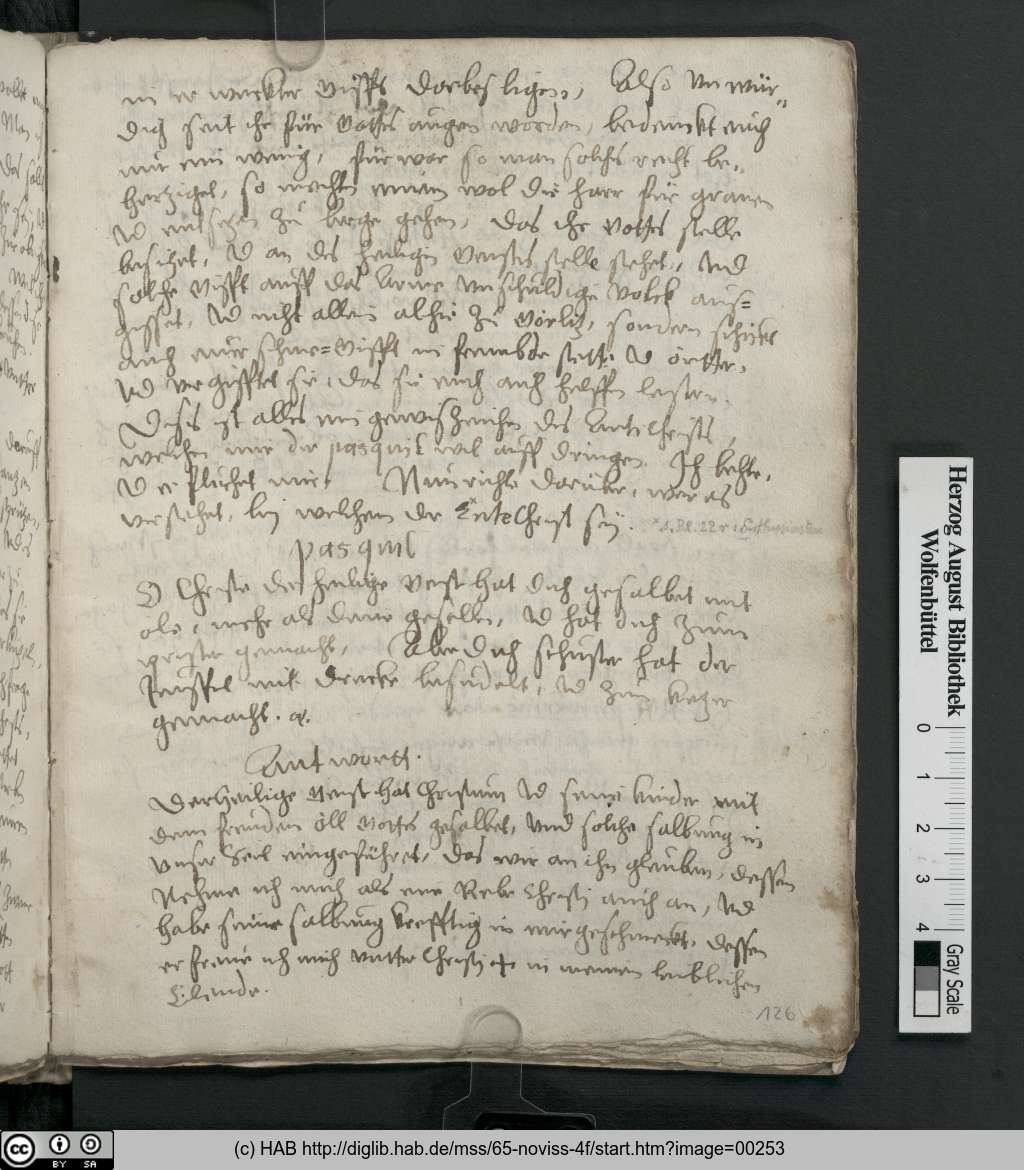 in er weckter Gifft darbes ligen, Also unwür„
dig seit ihr für Gottes augen worden, bedenckt euch
nur ein wenig, fürwar so man solches recht be„
hertziget, so mechten einem wol die haar für grauen
zu berge gehen, das ihr Gottes stelle
besitzet, V an des heiligen Geistes stelle stehet, Vnd
solche Gifft auff das Arme Vnschuldige Volck aus=
gisset, Vd nicht allein alhie zu Görlitz, sondern schicket
auch eure schme=Gifft in frembde stette Vd örtter,
Vd vergifftet sie, das sie euch auch helffen lestern.
Dises ist alles ein gewis zeichen des Antichrists,
welchen mir die pasquil wil auff dringen. Ich bethe,
V er fluchet mir, Nun richte darüber, wer es
verstehet, bey welchem der Entechrist sey.
pasquil
O Christe der heilige Geist hat dich gesalbet mit
öle, mehr als deine gesellen, Vd hat dich zum
prister gemacht, Aber dich schuster hat der
Teuffel mit drecke besudelt, Vd zum ketzer
gemacht. &.
Antwortt.
Der heilige Geist hat Christum Vd seine kinder mit
dem freuden öll Gottes gesalbet, Vnd solche salbung in
Vnser Seel eingeführet, das wir an ihn gleuben, dessen
Nehme ich mich als eine Rebe Christi auch an, Vd
habe seine salbung krefftig in mir geschmeckt, dessen
er freue ich mich vntter Christi + in meinem leiblichen
Elende.
126
Herzog August Bibliothek
Wolfenbüttel
0 1 2 3 4
Gray Scale
cc BY SA
(c) HAB http://diglib.hab.de/mss/65-noviss-4f/start.htm?image=00253